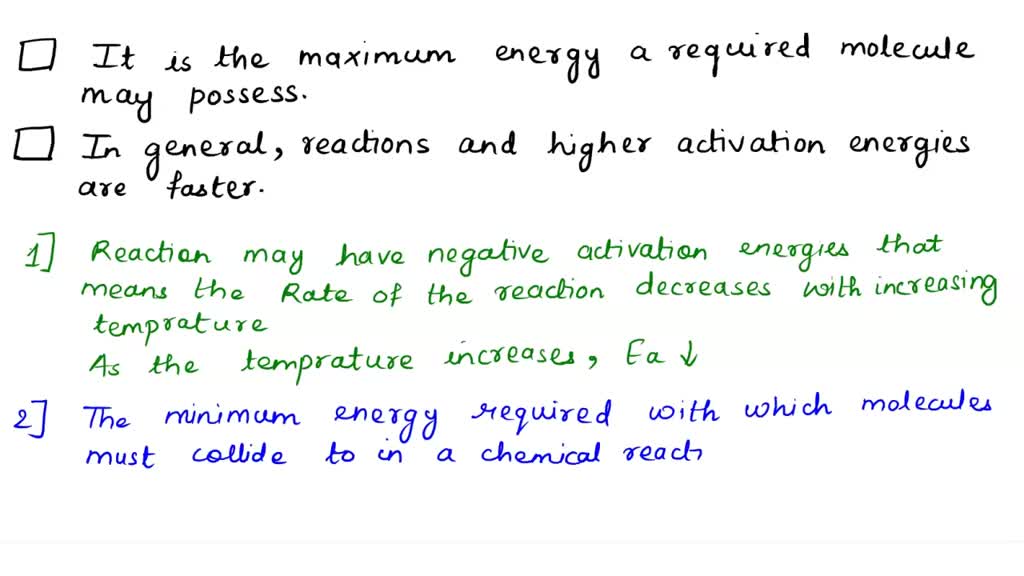 It is the maximum energy a required molecule
may possess.
In general, reactions and higher activation energies
are faster.
1] Reaction may have negative activation energies that
means the Rate of the reaction decreases with increasing
temprature
As the temprature increases, Ea ↓
2] The minimum energy required with which molecules
must collide to in a chemical react